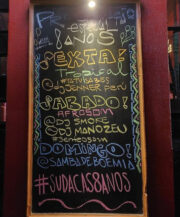 ANOS
SEXTA!
Tropical
@DJENNER PERÚ
SABADO!
AFROSOM
@DJ SMOKE
@DJ MANOZEN
DOMINGO!
@SAMBADEBOEMIA
#SUDACAS8ANOS